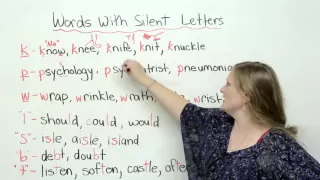 Words With Silent Letters
"No"
K - know, knee, knife, knit, knuckle
P - psychology, psychiatrist, pneumonia
W - wrap, wrinkle, wrath, wrist
"l" - should, could, would
"S" - isle, aisle, island
"b" - debt, doubt
"t" - listen, soften, castle, often